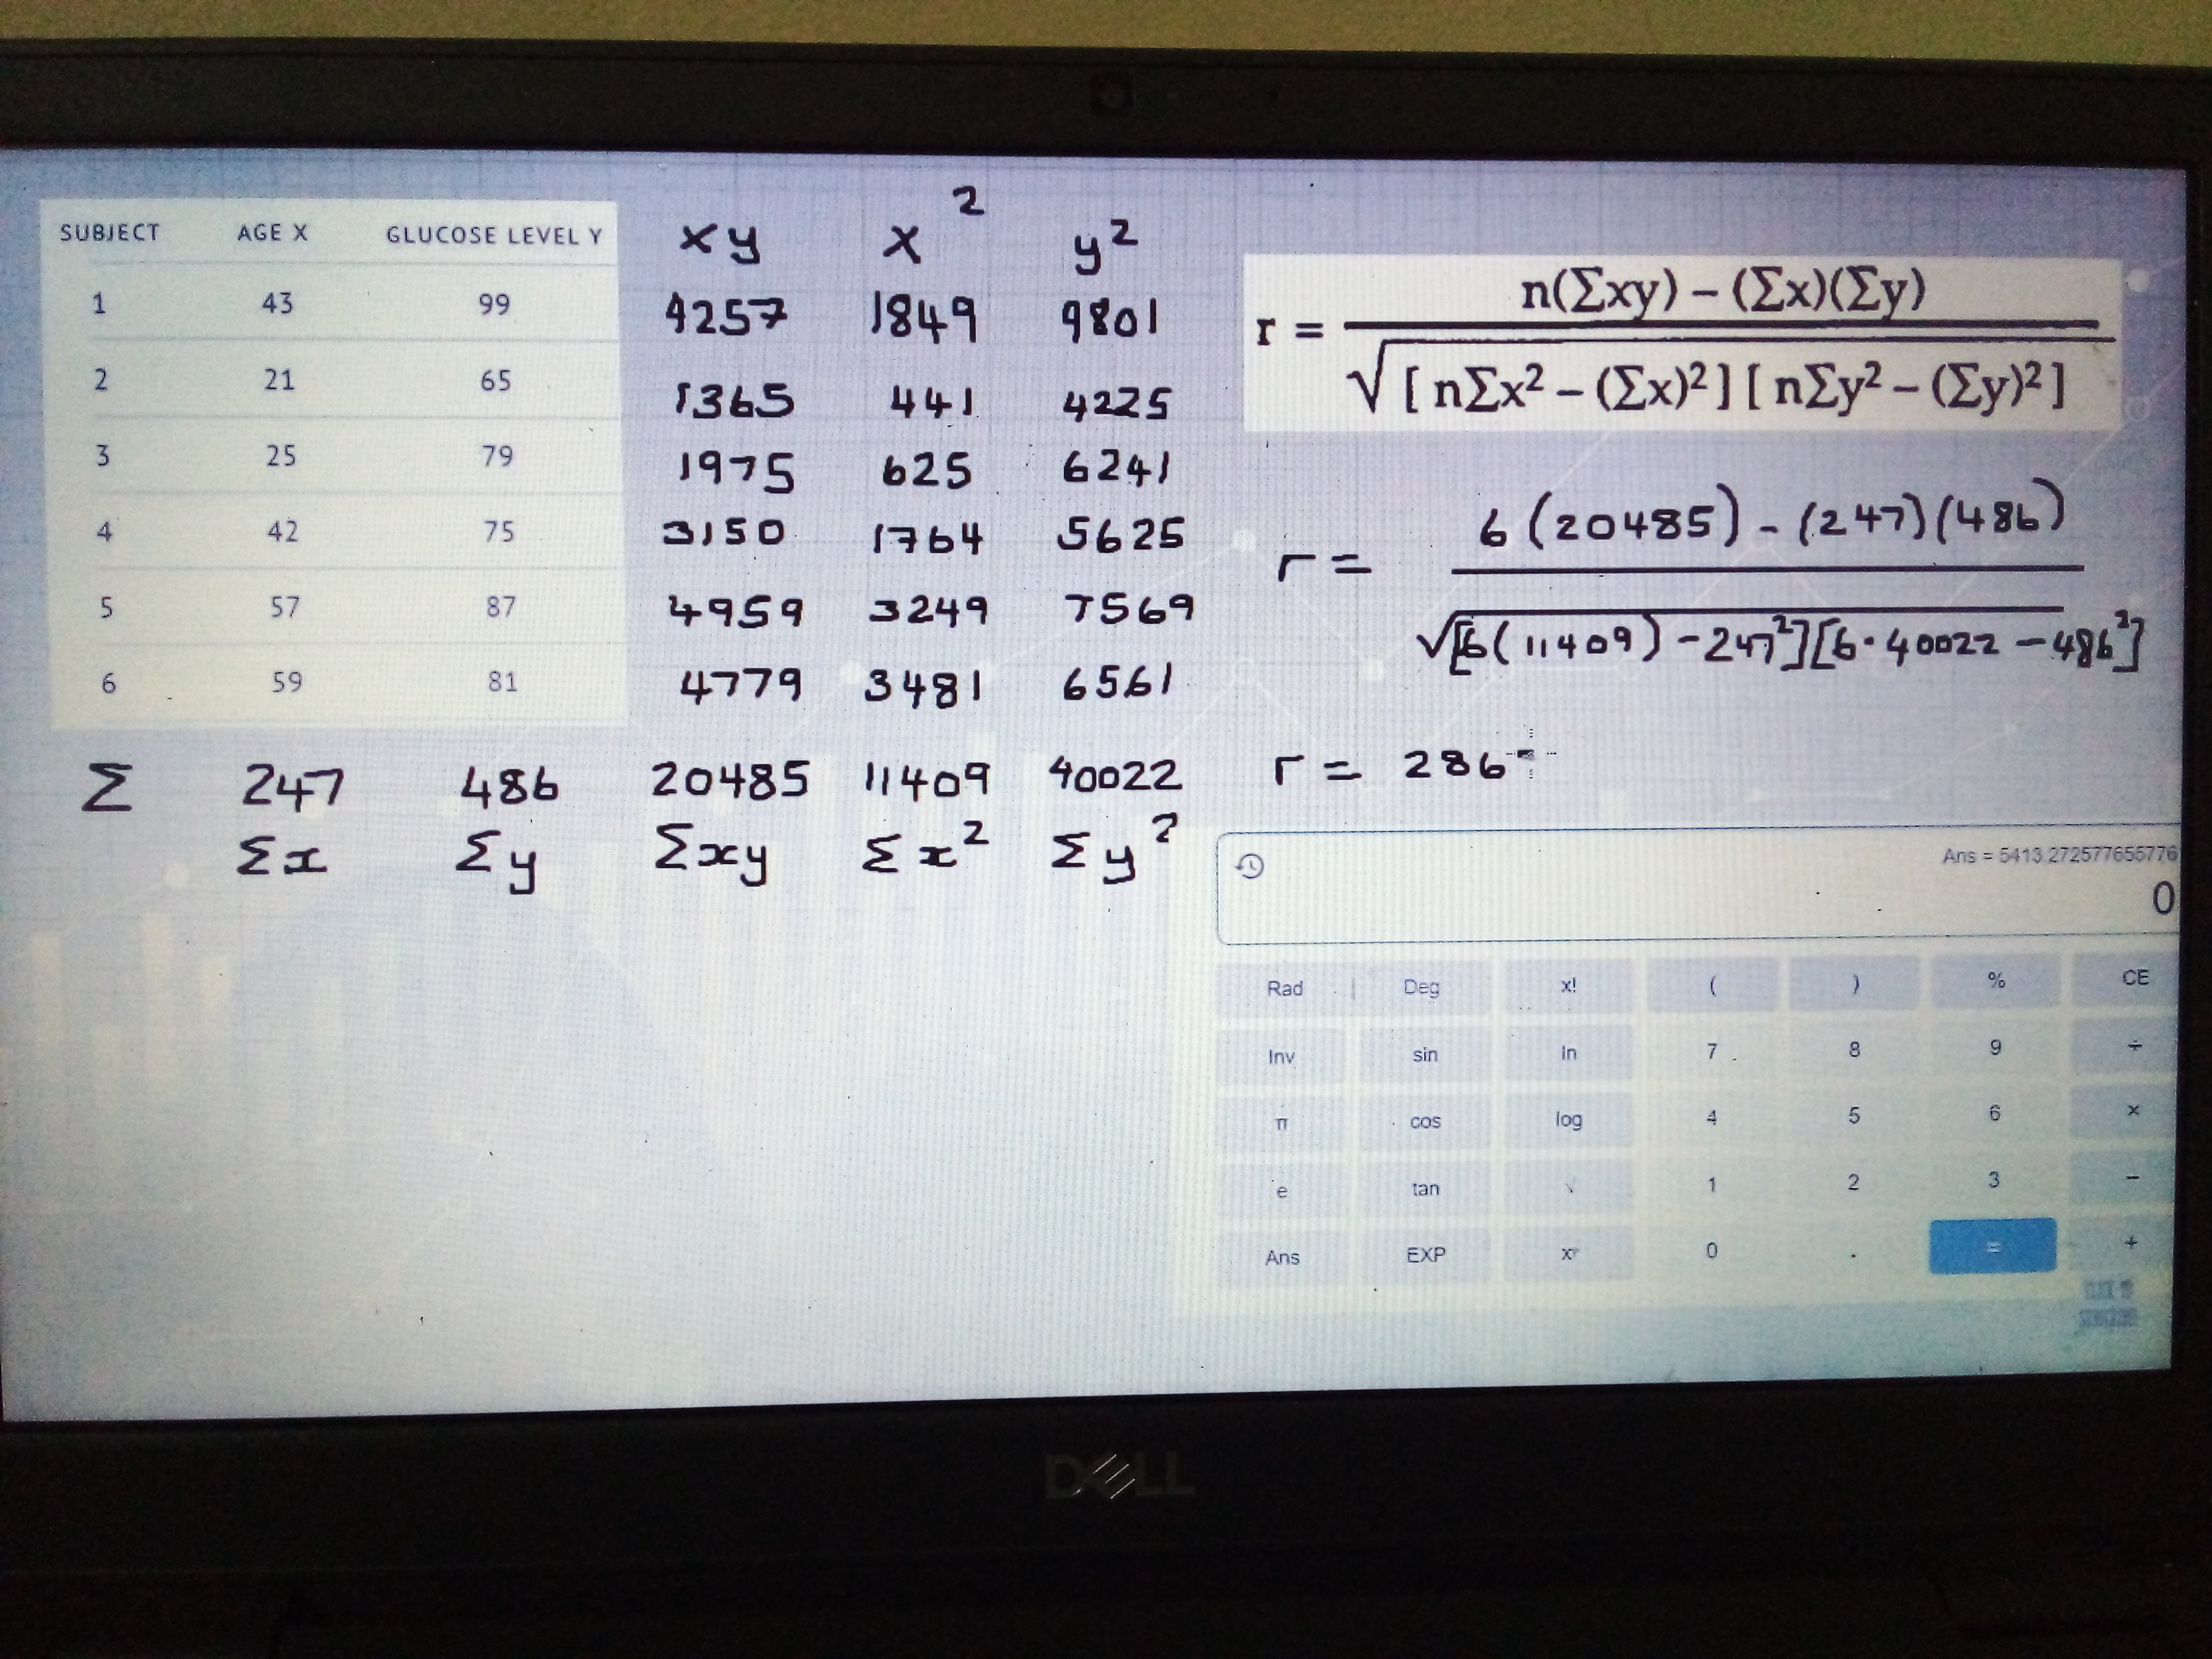 SUBJECT AGE X GLUCOSE LEVEL Y xy x² y²
1 43 99 4257 1849 9801
2 21 65 1365 441 4225
3 25 79 1975 625 6241
4 42 75 3150 1764 5625
5 57 87 4959 3249 7569
6 59 81 4779 3481 6561
Σ 247 486 20485 11409 40022
Σx Σy Σxy Σx² Σy²
r = n(Σxy) – (Σx)(Σy)
√[ nΣx² – (Σx)² ] [ nΣy² – (Σy)² ]
r = 6(20485) - (247)(486)
√[6(11409) - 247²][6·40022 - 486²]
r = 286
Ans = 5413.272577655776
0
Rad | Deg x! ( ) % CE
Inv sin ln 7 8 9 ÷
π cos log 4 5 6 ×
e tan √ 1 2 3 −
Ans EXP xʸ 0 . = +
DELL